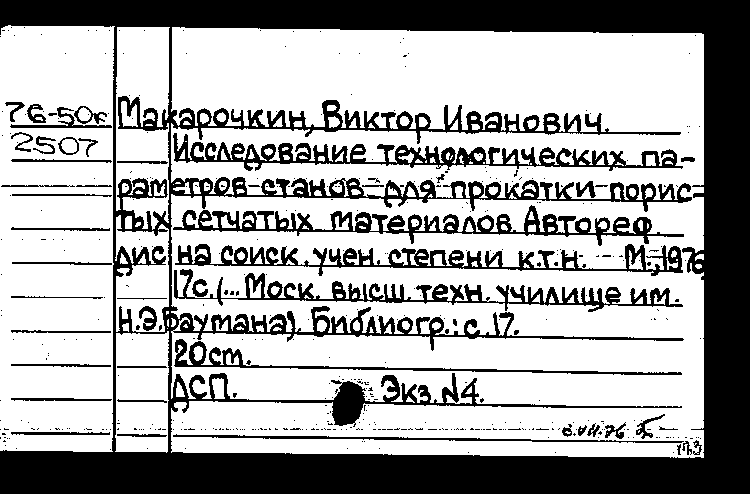 76-50к Макарочкин, Виктор Иванович.
2507 Исследование технологических па-
раметров станов для прокатки порис-
тых сетчатых материалов. Автореф.
дис на соиск. учен. степени к.т.н. М., 1976
17с. (... Моск. высш. техн. училище им.
Н.Э.Баумана). Библиогр.: с.17.
20ст.
ДСП. Экз.№4.
6.VII.76